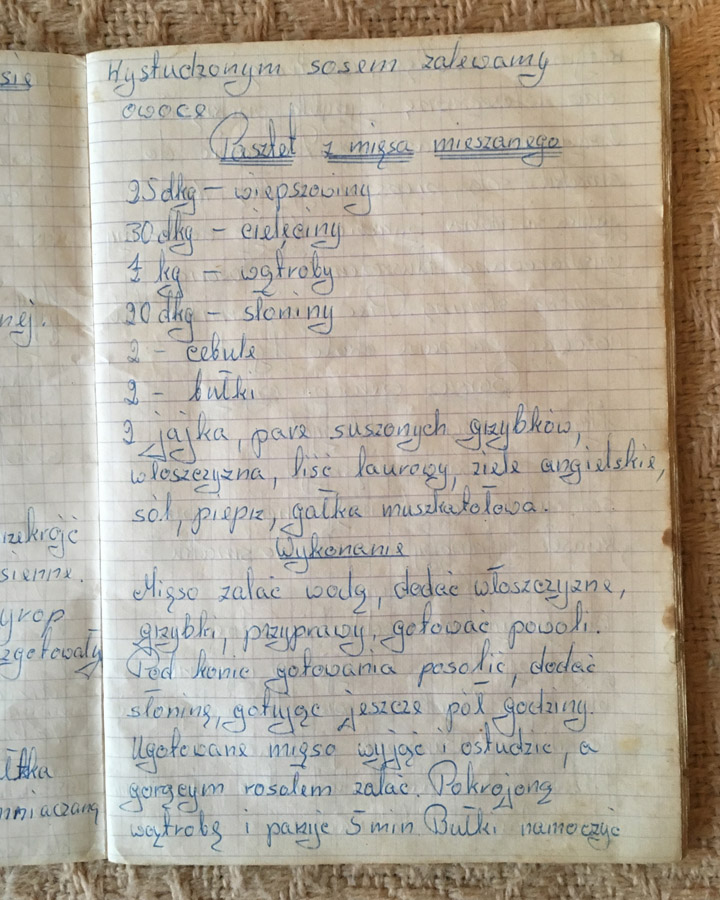 się
nej.
zekrójć
sienne.
yrop
zgotowały
łtka
mniaczaną
Wystudzonym sosem zalewamy
owoce
Pasztet z mięsa mieszanego
25 dkg – wiepszowiny
30 dkg – cielęciny
1 kg – wątroby
20 dkg – słoniny
2 – cebule
2 – bułki
2 jajka, pare suszonych grzybków,
włoszczyzna, liść laurowy, ziele angielskie,
sól, pieprz, gałka muszkatołowa.
Wykonanie
Mięso zalać wodą, dodać włoszczyzne,
grzybki, przyprawy, gotować powoli.
Pod konic gotowania posolić, dodać
słoninę, gotując jeszcze pół godziny.
Ugotowane mięso wyjąć i ostudzic, a
gorącym rosołem zalać. Pokrojoną
wątrobę i parzyc 5 min Bułki namoczyć